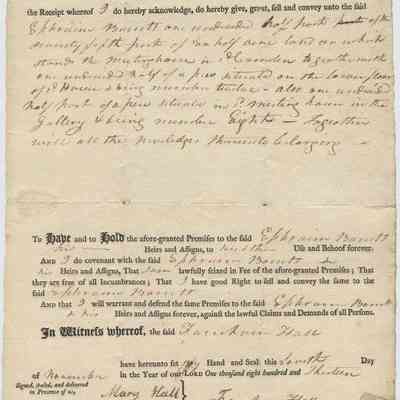 the Receipt whereof I do hereby acknowledge, do hereby give, grant, sell and convey unto the said
Ephraim Barrett one undivided half part of the
seventy fifth part of an half acre land on which
stands the Meetinghouse in Camden together with
one undivided half of a pew situated on the lower floor
of House & being number twelve - also one undivided
half part of a pew situate in meeting house in the
Gallery & being number Eight - together
with all the priviledges thereunto belonging
To Have and to Hold the afore-granted Premises to the said Ephraim Barrett
his Heirs and Assigns, to Use and Behoof forever.
AND I do covenant with the said Ephraim Barrett &
his Heirs and Assigns, That I am lawfully seized in Fee of the afore-granted Premises; That
they are free of all Incumbrances; That I have good Right to sell and convey the same to the
said Ephraim Barrett
AND that I will warrant and defend the same Premises to the said Ephraim Barrett
& his Heirs and Assigns forever, against the lawful Claims and Demands of all Persons.
In Witness whereof, the said Hall
have hereunto set my Hand and Seal this Day
of November in the Year of our LORD One thousand eight hundred and thirteen
Signed, sealed, and delivered
in Presence of us,
Mary Hall
Hall